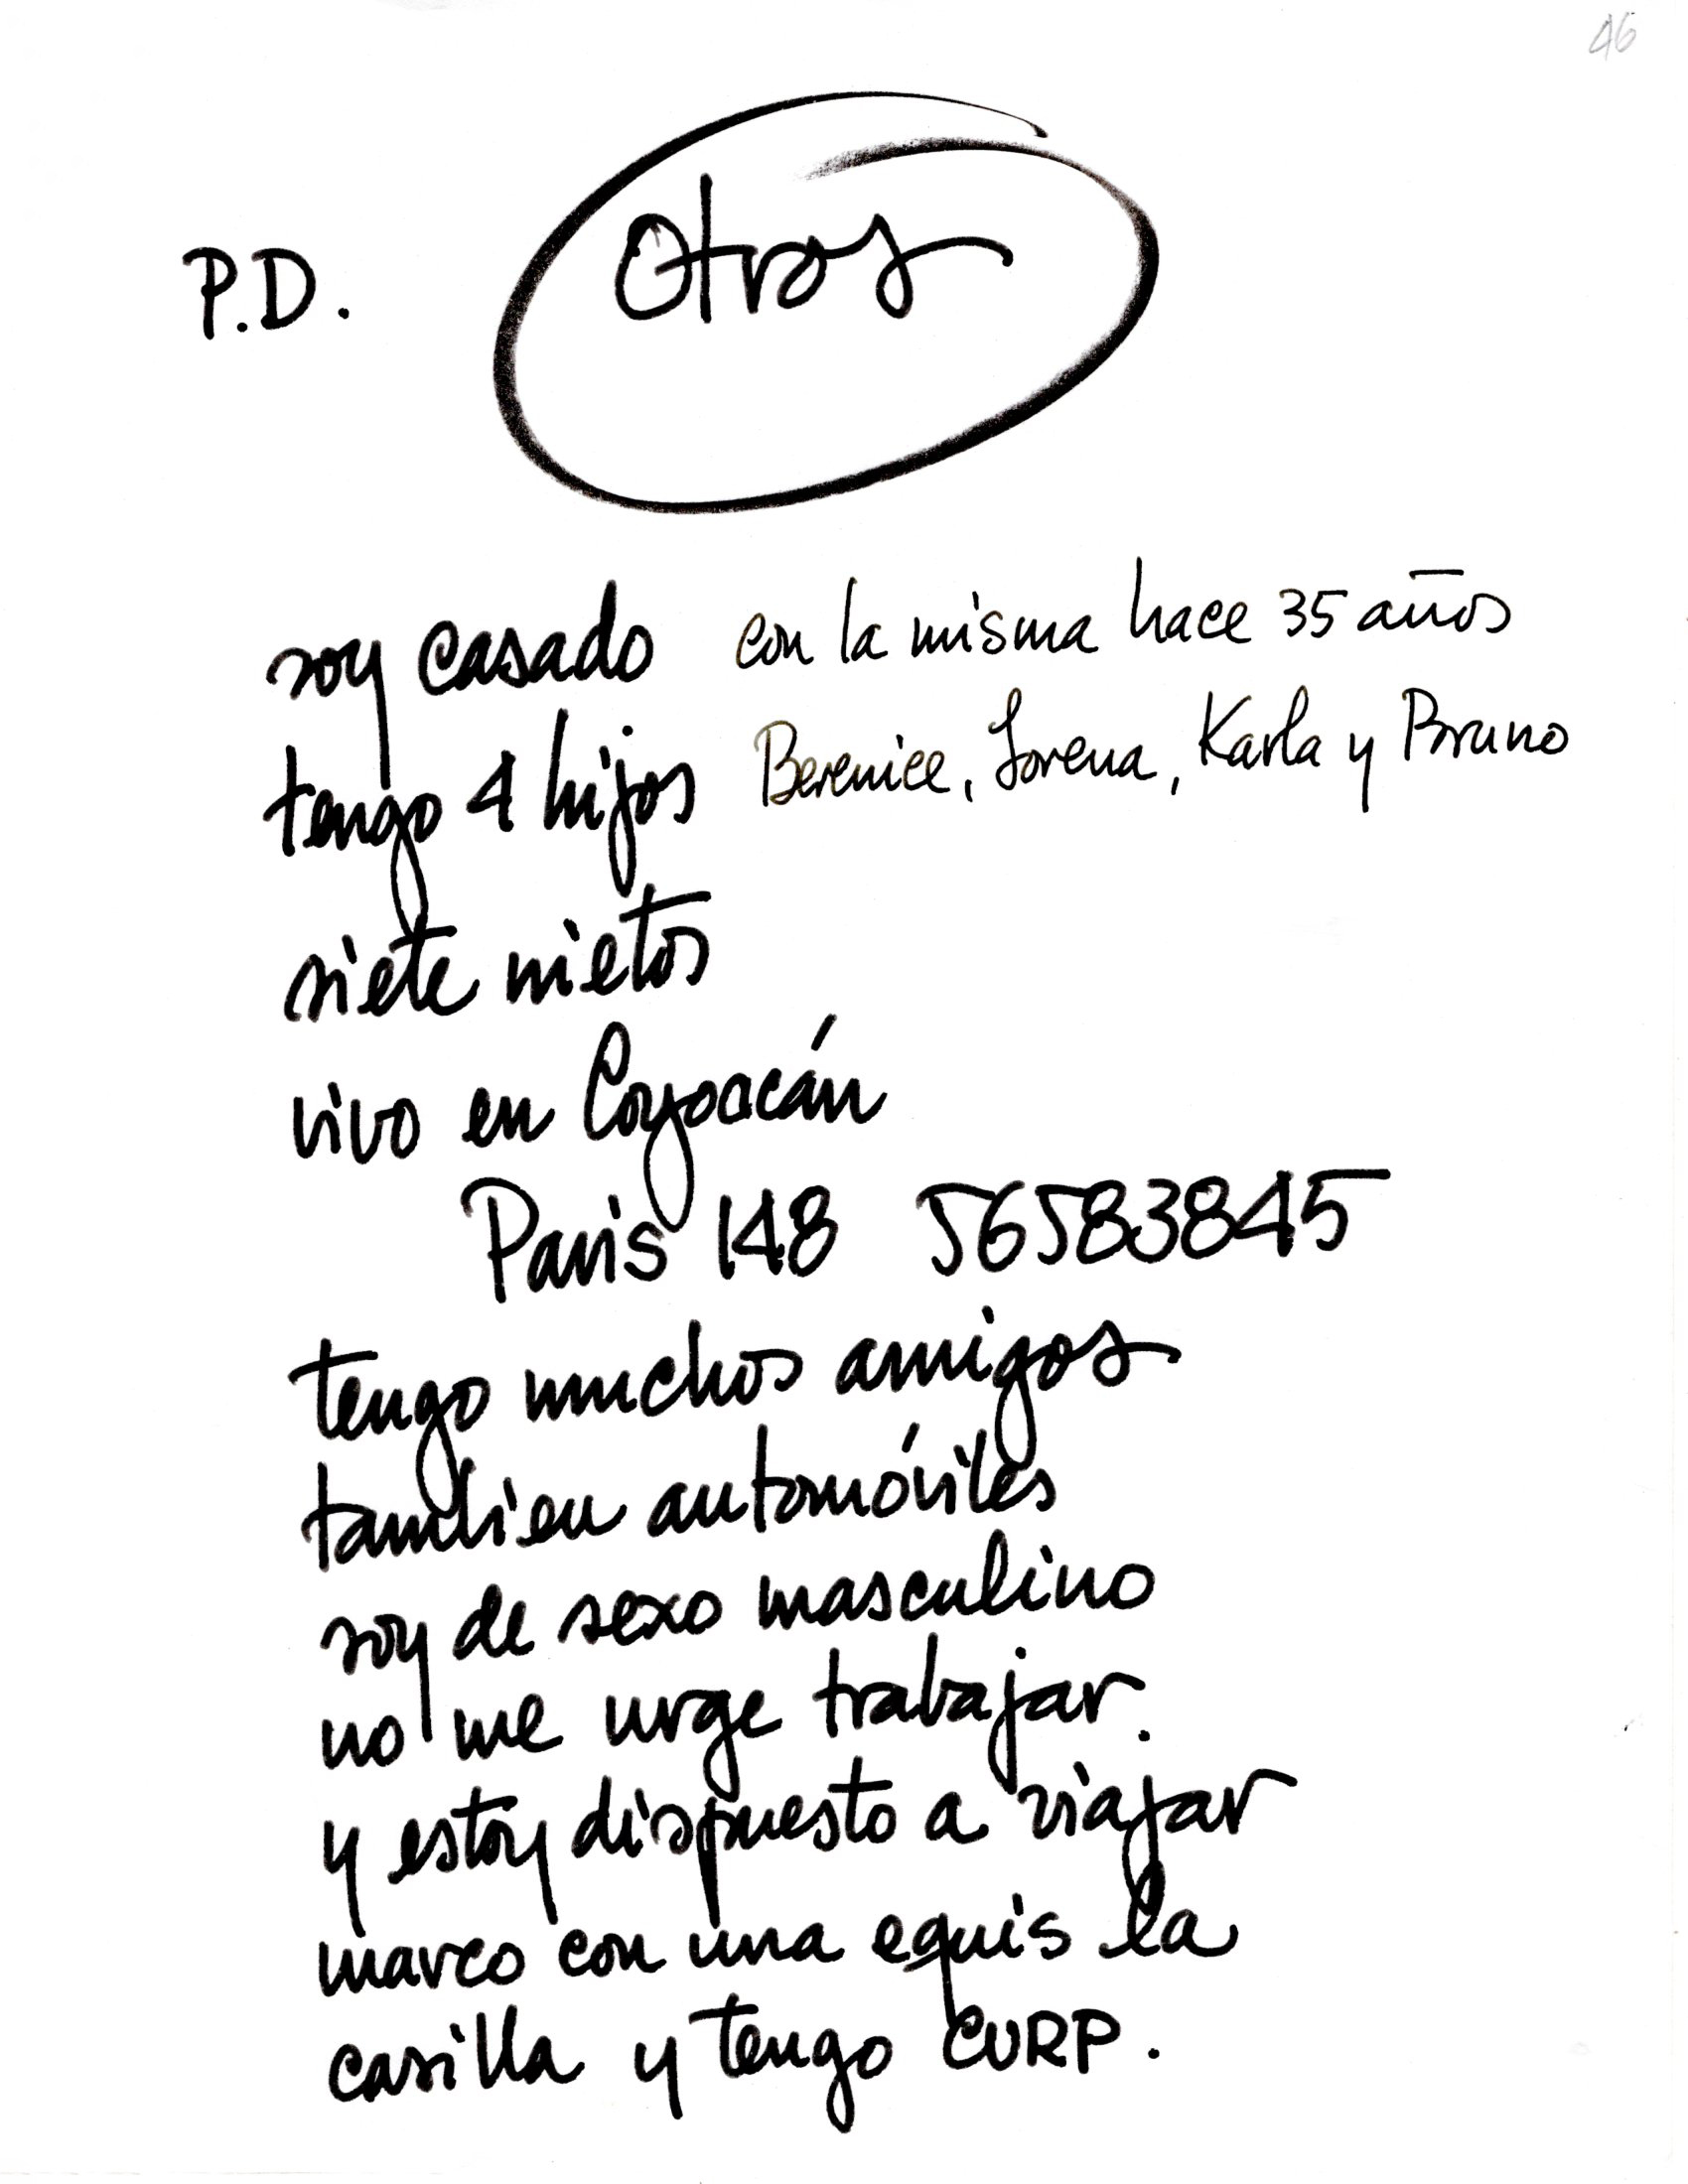 46
P.D. Otros
soy casado con la misma hace 35 años
tengo 4 hijos Berenice, Lorena, Karla y Bruno
siete nietos
vivo en Coyoacán
Paris 148 56583845
tengo muchos amigos
tambien automóviles
soy de sexo masculino
no me urge trabajar.
y estoy dispuesto a viajar
marco con una equis la
casilla y tengo CURP.